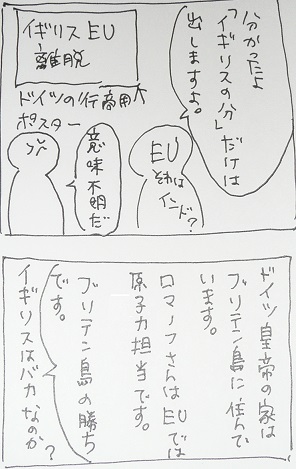 分かったよ
「イギリスの分」だけは
出しますよ。
イギリスEU
離脱
ドイツの行商用
ポスター
EU
それは
インド?
意味不明だ
ドイツ皇帝の家は
ブリテン島に住んで
います。
ロマーノフさんはEUでは
原子力担当です。
ブリテン島の勝ち
です。
イギリスはバカなのか?